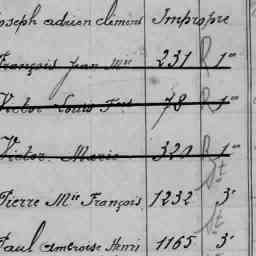 Joseph Adrien Clément Impropre
François Jean Mie 231 R 1re
Victor Louis Fois 78 R 1re
Victor Marie 320 R 1re
Pierre Mie François 1232 St 3e
Paul Ambroise Henri 1165 St 3e